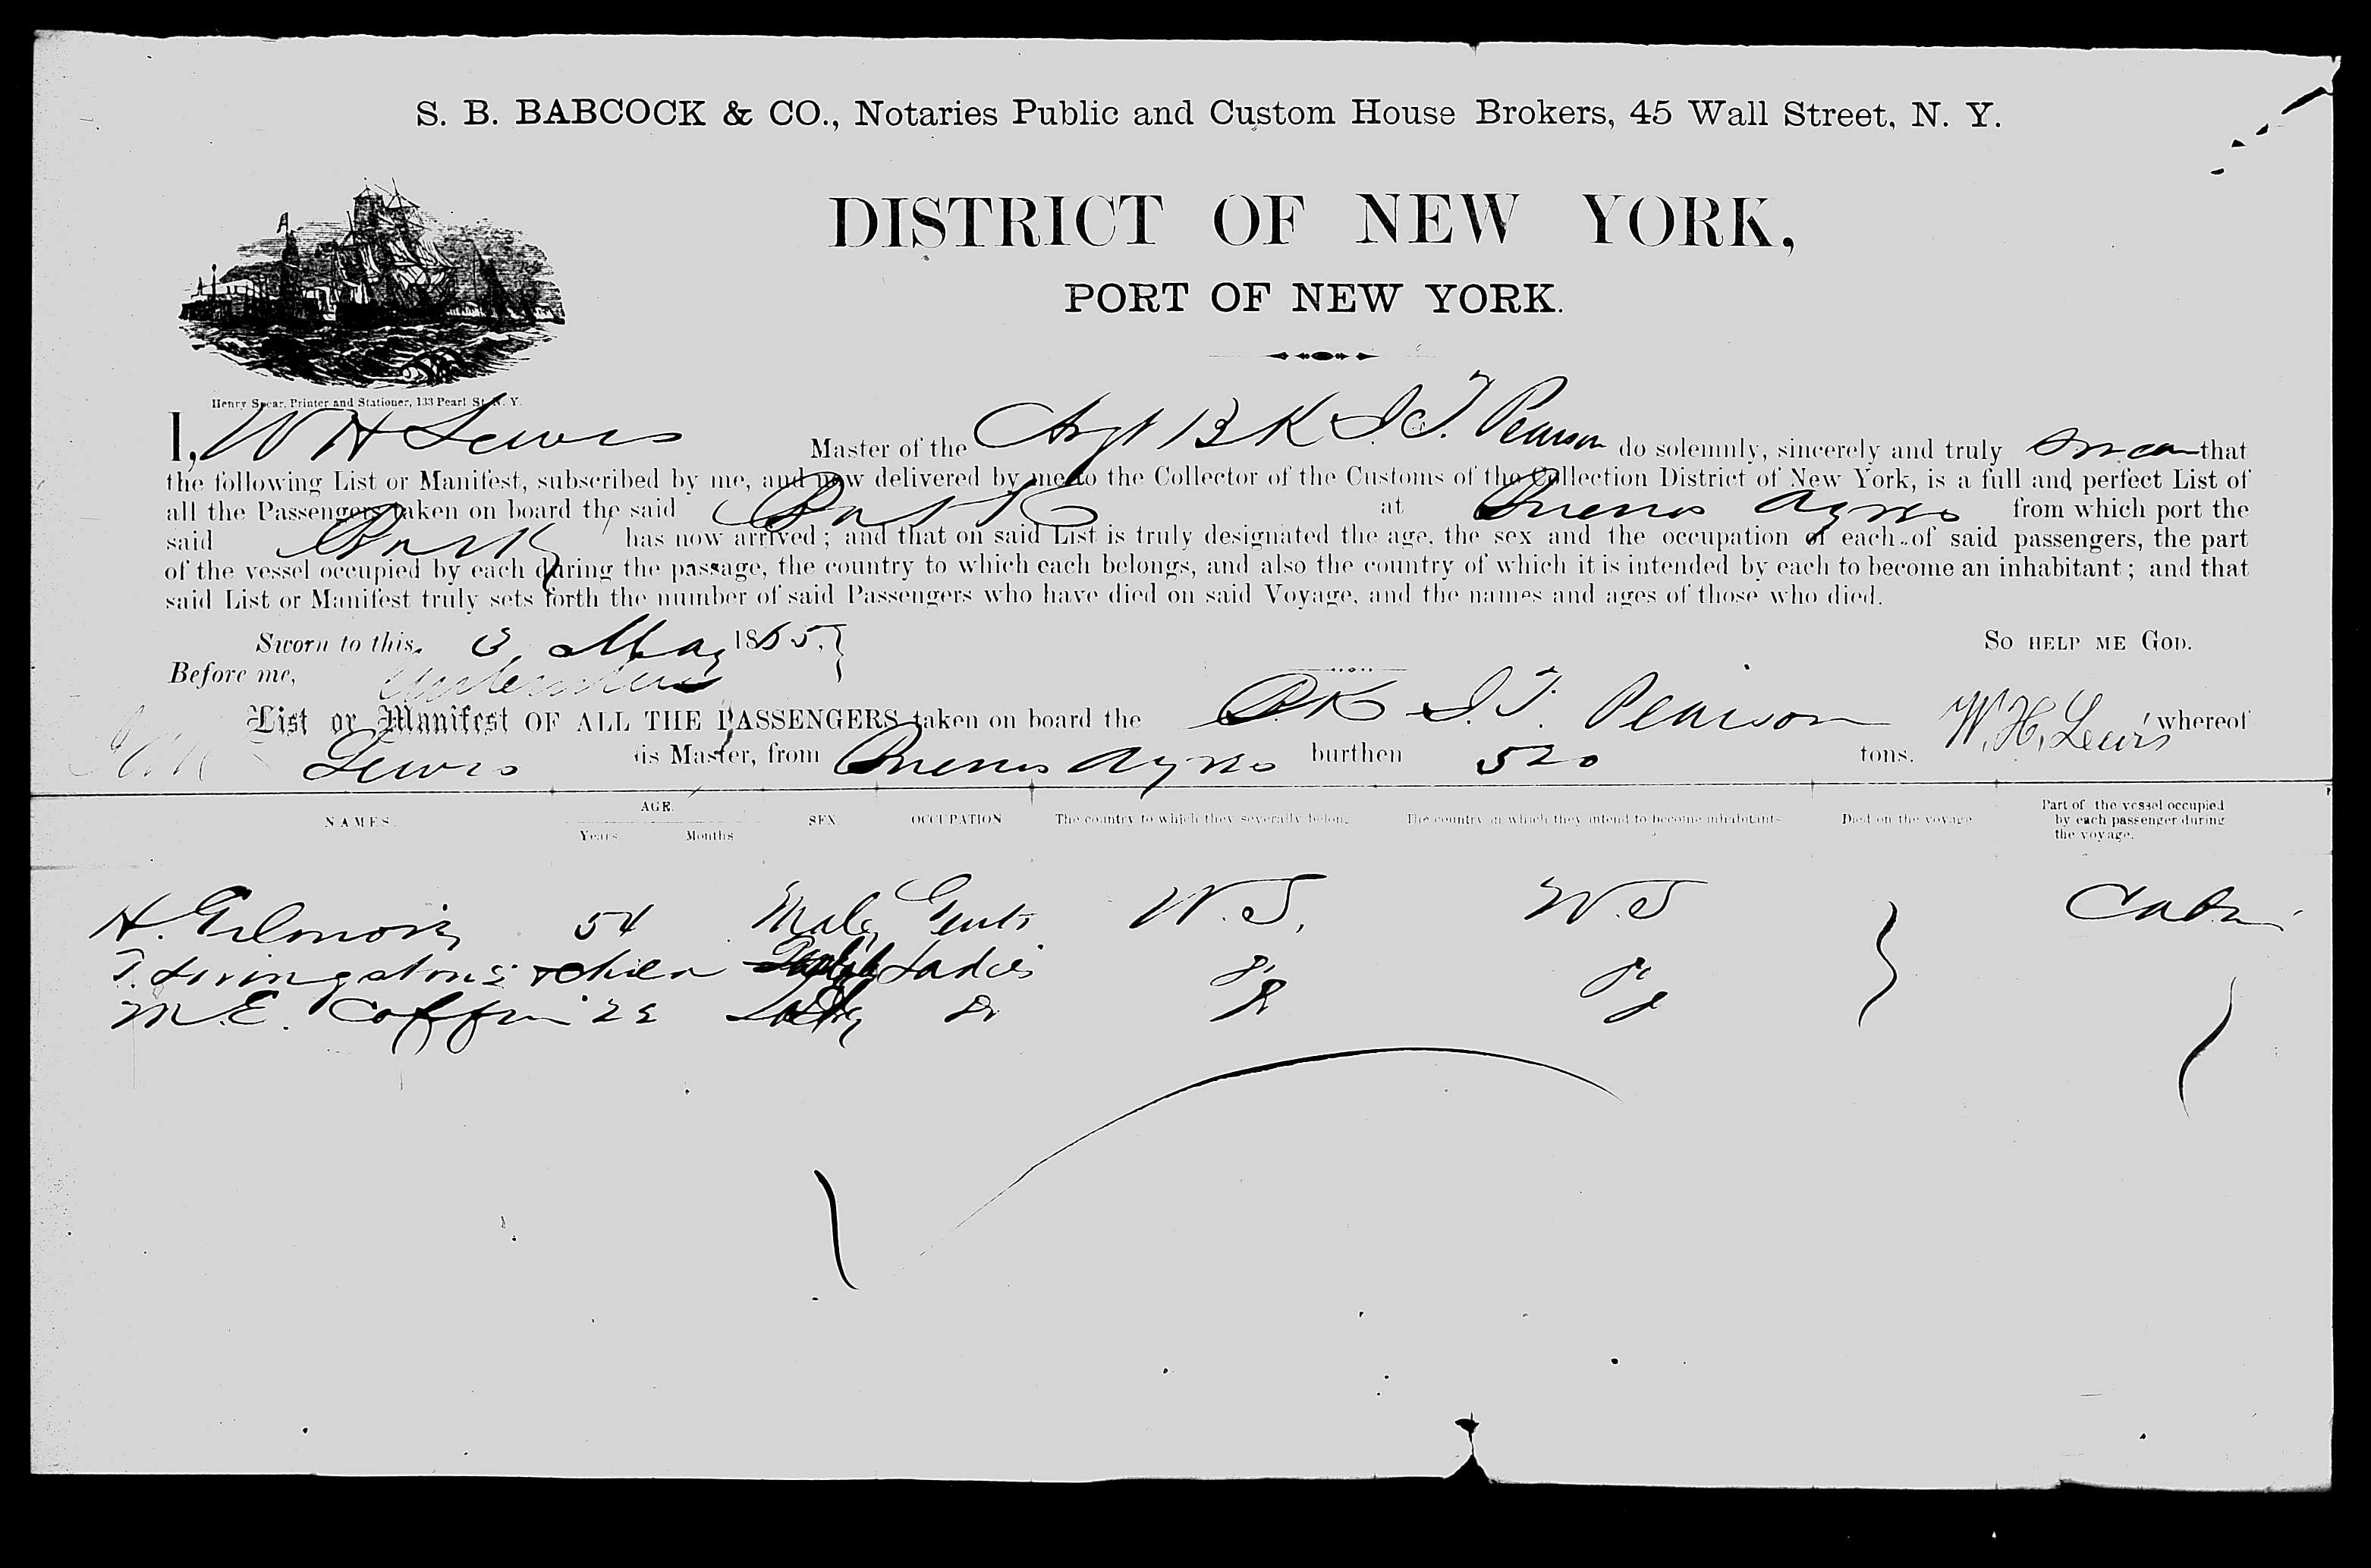 S. B. BABCOCK & CO., Notaries Public and Custom House Brokers, 45 Wall Street, N. Y.
DISTRICT OF NEW YORK,
PORT OF NEW YORK.
Henry Spear, Printer and Stationer, 133 Pearl St. N. Y.
I, W H Lewis Master of the BK Pearson do solemnly, sincerely and truly swear that
the following List or Manifest, subscribed by me, and now delivered by me to the Collector of the Customs of the Collection District of New York, is a full and perfect List of
all the Passengers taken on board the said Bark at Buenos Ayres from which port the
said Bark has now arrived; and that on said List is truly designated the age, the sex and the occupation of each of said passengers, the part
of the vessel occupied by each during the passage, the country to which each belongs, and also the country of which it is intended by each to become an inhabitant; and that
said List or Manifest truly sets forth the number of said Passengers who have died on said Voyage, and the names and ages of those who died.
Sworn to this 3, May 1865, SO HELP ME GOD.
Before me,
List or Manifest OF ALL THE PASSENGERS taken on board the BK Pearson whereof
W. H. Lewis
Lewis is Master, from Buenos Ayres burthen 520 tons.
NAMES. AGE. Years Months SEX OCCUPATION The country to which they severally belong The country in which they intend to become inhabitants Died on the voyage Part of the vessel occupied by each passenger during the voyage.
H. Gilmore 54 Male Gent U.S. U.S Cabin
Livingstone Ladies
M. E. Coffin Do